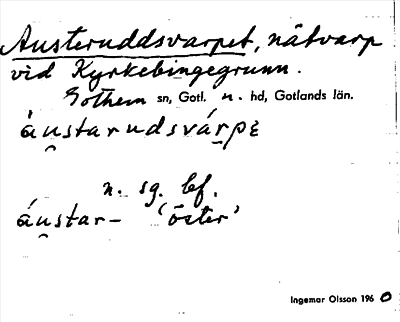 Austeruddsvarpet, nätvarp
vid Kyrkebingegrunn.
Gothem sn, Gotl. n. hd, Gotlands län.
áu̯starudsvárpɛ
n. sg. bf.
áu̯star– ‘öster’
Ingemar Olsson 1960